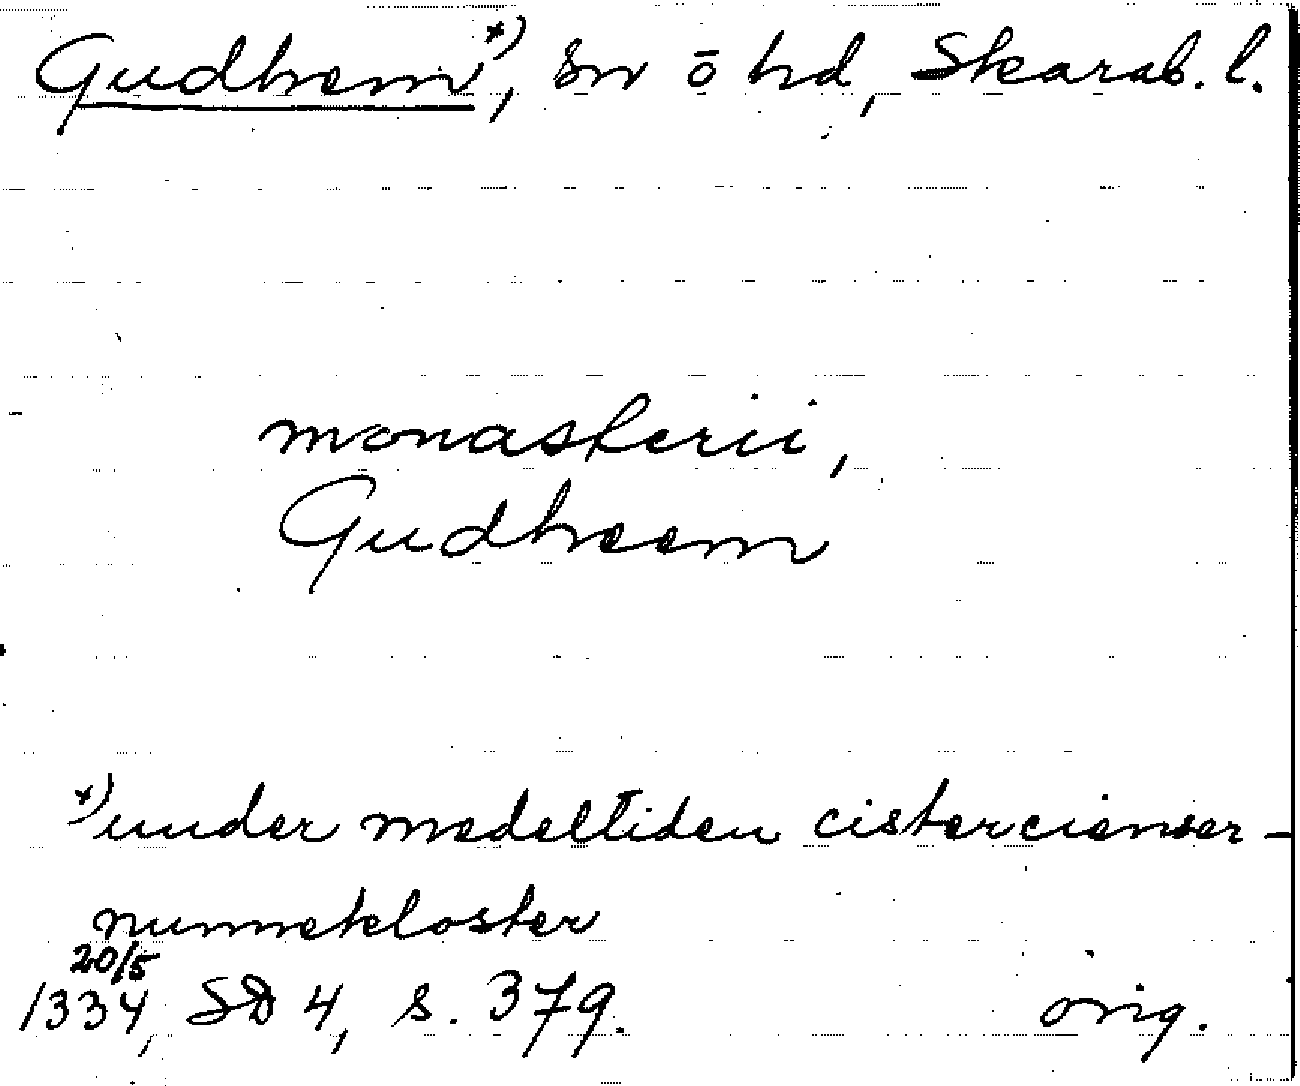 Gudhem*), sn ō hd, Skarab. l.
monasterii,
Gudheem
*) under medeltiden cistercienser-
nunnekloster
20/5
1334, SD 4, s. 379. orig.